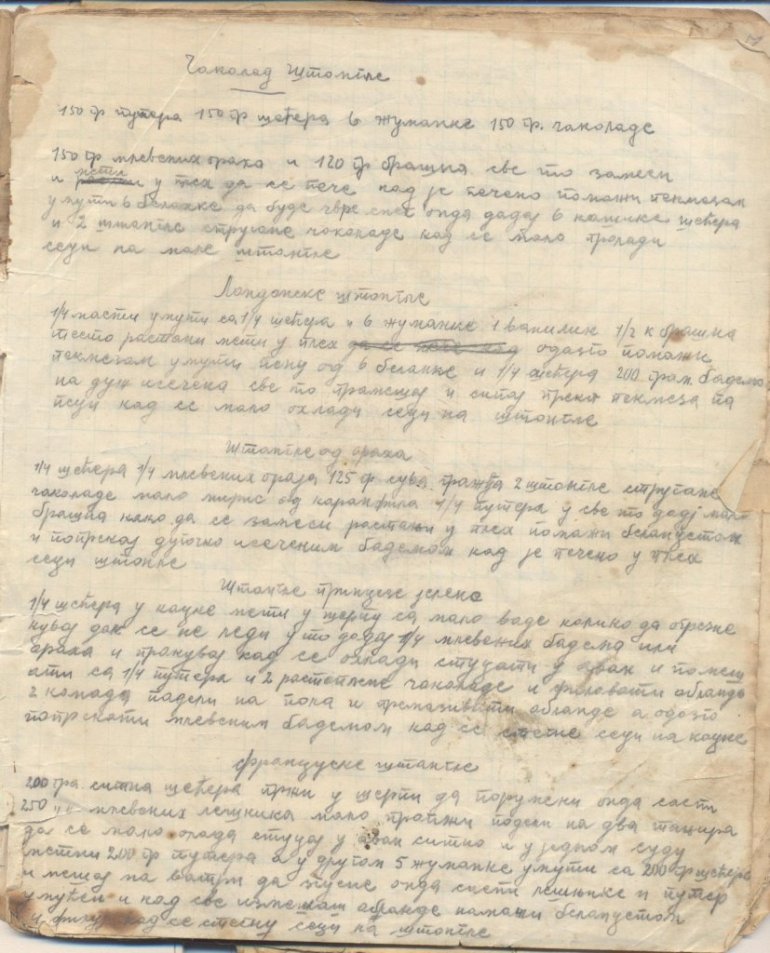 Чоколад штангле
150 гр путера 150 гр шећера 6 жуманке 150 гр. чоколаде
150 гр млевених ораха и 120 гр брашна све то замеси
и мети у плех да се пече кад је печено помажи пекмезом
умути 6 беланке да буде чврс снег онда додај 6 кашике шећера
и 2 штангле стругане чоколаде кад се мало прохлади
сеци на мале штангле
Лондонске штангле
1/4 масти умути са 1/4 шећера и 6 жуманке 1 ванилин 1/2 к брашна
тесто растањи мети у плех да се пече кад одозго помажи
пекмезом умути пену од 6 беланке и 1/4 шећера 200 грам. бадема
на дуж исечена све то промешај и сипај преко пекмеза па
пеци кад се мало охлади сеци на штангле
Штангле од ораха
1/4 шећера 1/4 млевених ораја 125 гр сува грожђа 2 штангле стругане
чоколаде мало мирис од каранфила 1/4 путера у све то додај мало
брашна како да се замеси растањи у плех помажи беланцетом
и попрскај дугачко исеченим бадемом кад је печено у плех
сеци штангле
Штангле принцезе јелене
1/4 шећера у коцке мети у шерпу са мало воде колико да огрезне
кувај док се не леди у то додај 1/4 млевених бадема или
ораха и прокувај кад се охлади стуцати у аван и помеш
ати са 1/4 путера и 2 растопљене чоколаде и филовати обланде
2 комада подели на пола и премазивати обланде а одозго
попрскати млевеним бадемом кад се стегне сеци на коцке
француске штангле
200 гра. ситна шећера пржи у шерпи да поружени онда саспи
250 " " млевених лешника мало пропржи подели на два тањира
да се мало охлада стуцај у аван ситно и у једном суду
метни 200 гр путера а у другом 5 жуманке умути са 200 гр шећера
и мешај на ватри да згусне онда саспи лешнике и путер
умућен и кад све измешаш обланде намажи беланцетом
и филуј кад се стегну сеци на штангле